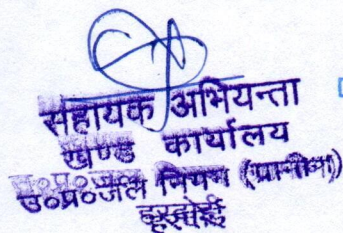 सहायक अभियन्ता
खण्ड कार्यालय
उ०प्र०जल निगम (ग्रामीण)
हरदोई